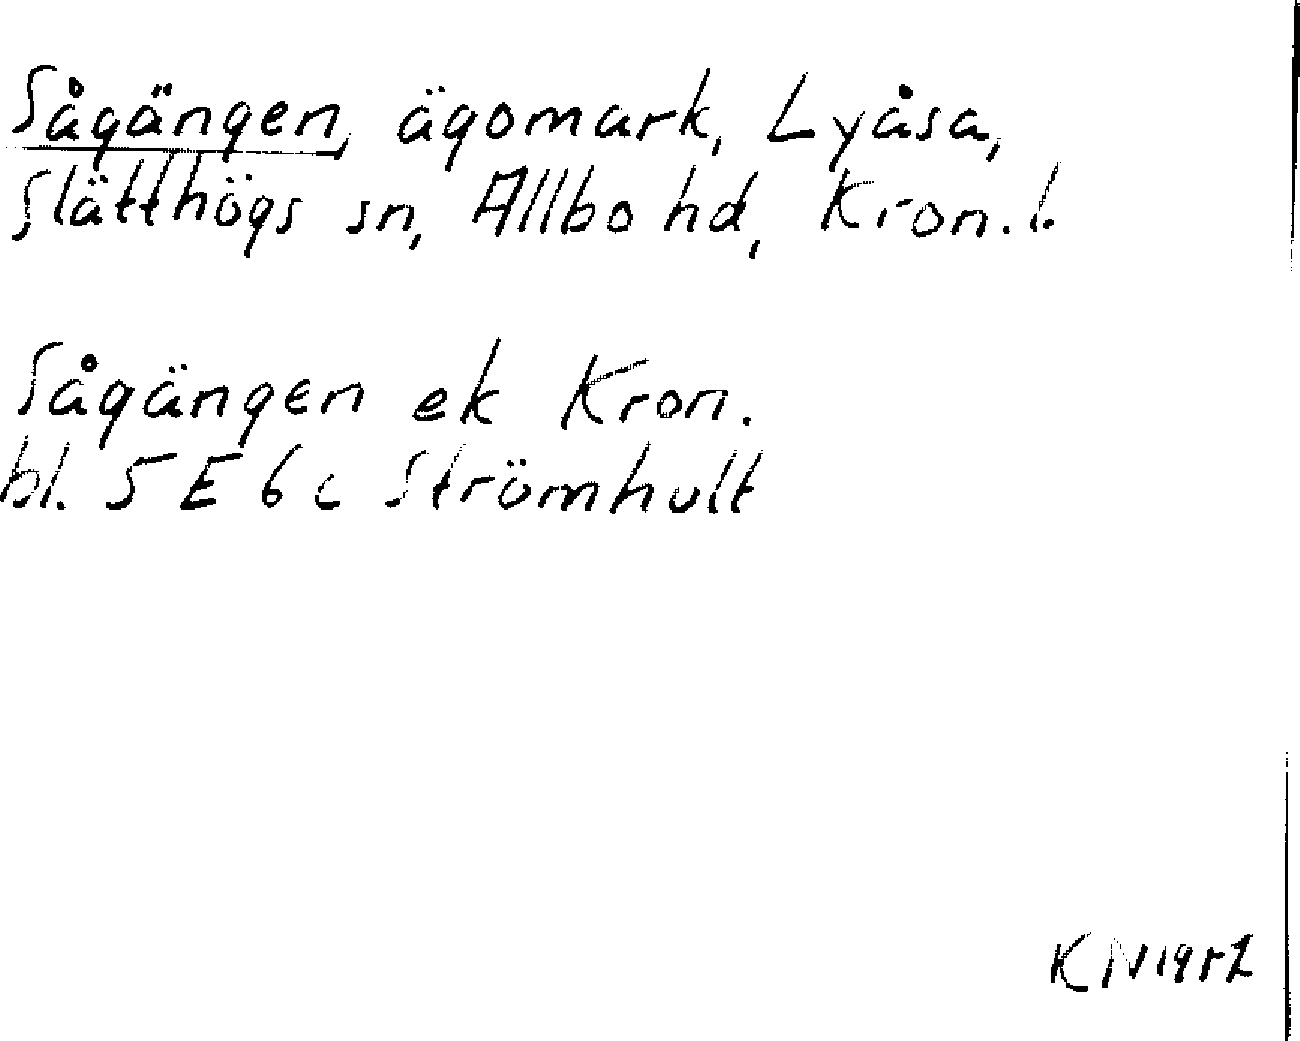 Sågängen, ägomark, Lyåsa,
Slätthögs sn, Allbo hd, Kron. l.
Sågängen ek Kron.
bl. 5 E 6 c Strömhult
KN